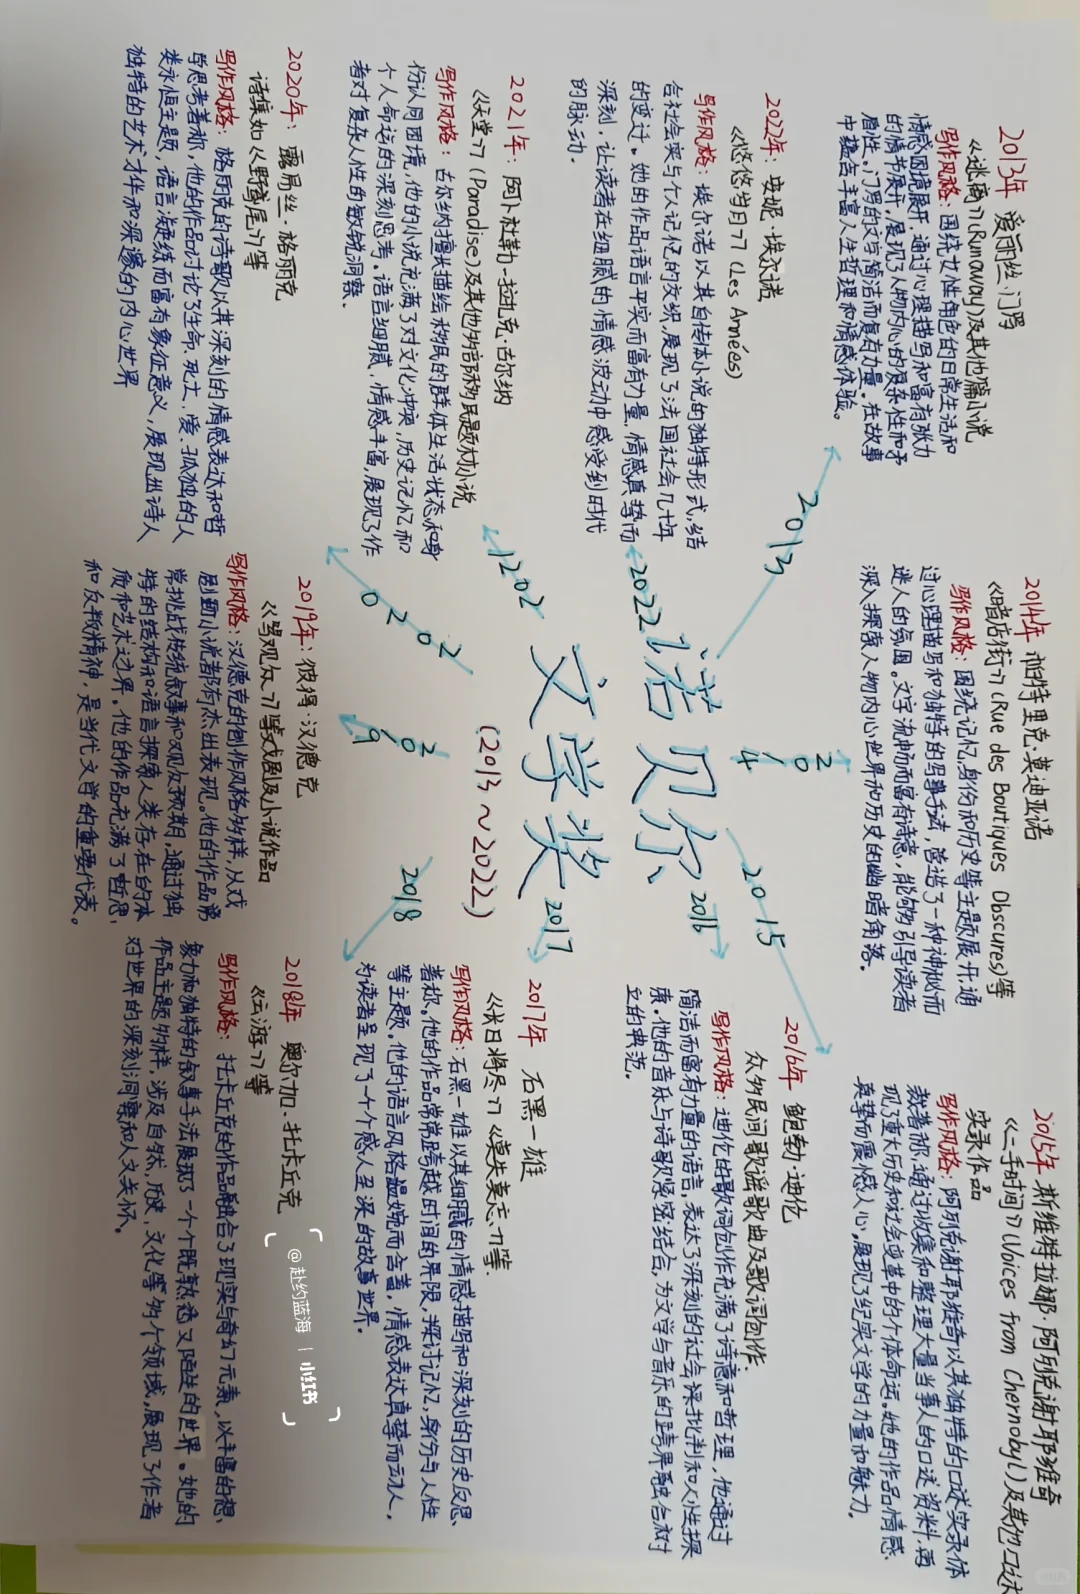 诺贝尔
文学奖
(2013～2022)
2013
2014
2015
2016
2017
2018
2019
2020
2021
2022
2013年 爱丽丝·门罗
《逃离》(Runaway)及其他篇小说
写作风格：围绕女性角色的日常生活和
情感困境展开，通过心理描写和富有张力
的情节展开，展现了人物内心的复杂性和矛
盾性。门罗的文字简洁而富有力量。在故事
中蕴含丰富人生哲理和情感体验。
2014年 帕特里克·莫迪亚诺
《暗店街》(Rue des Boutiques Obscures)等
写作风格：围绕记忆,身份和历史等主题展开,通
过心理描写和独特的写事手法，营造了一种神秘而
迷人的氛围。文字流畅而富有诗意，能够引导读者
深入探索人物内心世界和历史的幽暗角落。
2015年 斯维特拉娜·阿列克谢耶维奇
《二手时间》(Voices from Chernobyl)及其他口述
实录作品
写作风格：阿列克谢耶维奇以其独特的口述实录体
裁著称，通过收集和整理大量当事人的口述资料，再
现了重大历史和社会变革中的个体命运。她的作品情感
真挚而震憾人心，展现了纪实文学的力量和魅力。
2016年 鲍勃·迪伦
众多民间歌谣歌曲及歌词创作.
写作风格：迪伦的歌词创作充满了诗意和哲理，他通过
简洁而富有力量的语言，表达了深刻的社会批判和人性探
索。他的音乐与诗歌紧密结合，为文学与音乐的跨界融合树
立的典范。
2017年 石黑一雄
《长日将尽》《莫失莫忘》等.
写作风格：石黑一雄以其细腻的情感描写和深刻的历史反思
著称。他的作品常常跨越时间的界限，探讨记忆,身份与人性
等主题。他的语言风格温婉而含蓄，情感表达真挚而动人，
为读者呈现了一个个感人至深的故事世界。
2018年 奥尔加·托卡丘克
《云游》等
写作风格：托卡丘克的作品融合了现实与奇幻元素，以丰富的想
象力和独特的叙事手法展现了一个个既熟悉又陌生的世界。她的
作品主题多样，涉及自然,历史,文化等多个领域,展现了作者
对世界的深刻洞察和人文关怀。
2019年：彼得·汉德克
《骂观众》等戏剧及小说作品
写作风格：汉德克的创作风格多样，从戏
剧到小说都有杰出表现。他的作品常
常挑战传统叙事和观众预期，通过独
特的结构和语言探索人类存在的本
质和艺术边界。他的作品充满了哲思
和反叛精神，是当代文学的重要代表。
2020年：露易丝·格丽克
诗集如《野鸢尾》等
写作风格：格丽克的诗歌以其深刻的情感表达和哲
学思考著称，他的作品讨论了生命,死亡,爱,孤独的人
类永恒主题，语言凝练而富有象征意义，展现出诗人
独特的艺术才华和深邃的内心世界
2021年：阿卜杜勒-拉扎克·古尔纳
《天堂》(Paradise)及其他多部移民题材小说
写作风格：古尔纳擅长描绘移民的群体生活状态和身
份认同困境，他的小说充满了对文化冲突，历史记忆和
个人命运的深刻思考。语言细腻，情感丰富，展现了作
者对复杂人性的敏锐洞察。
2022年：安妮·埃尔诺
《悠悠岁月》(Les Années)
写作风格：埃尔诺以其自传体小说的独特形式，结
合社会实与个人记忆的交织，展现了法国社会几十年
的变迁。她的作品语言平实而富有力量，情感真挚而
深刻，让读者在细腻的情感波动中感受到时代
的脉动。
@赴约蓝海 | 小红书